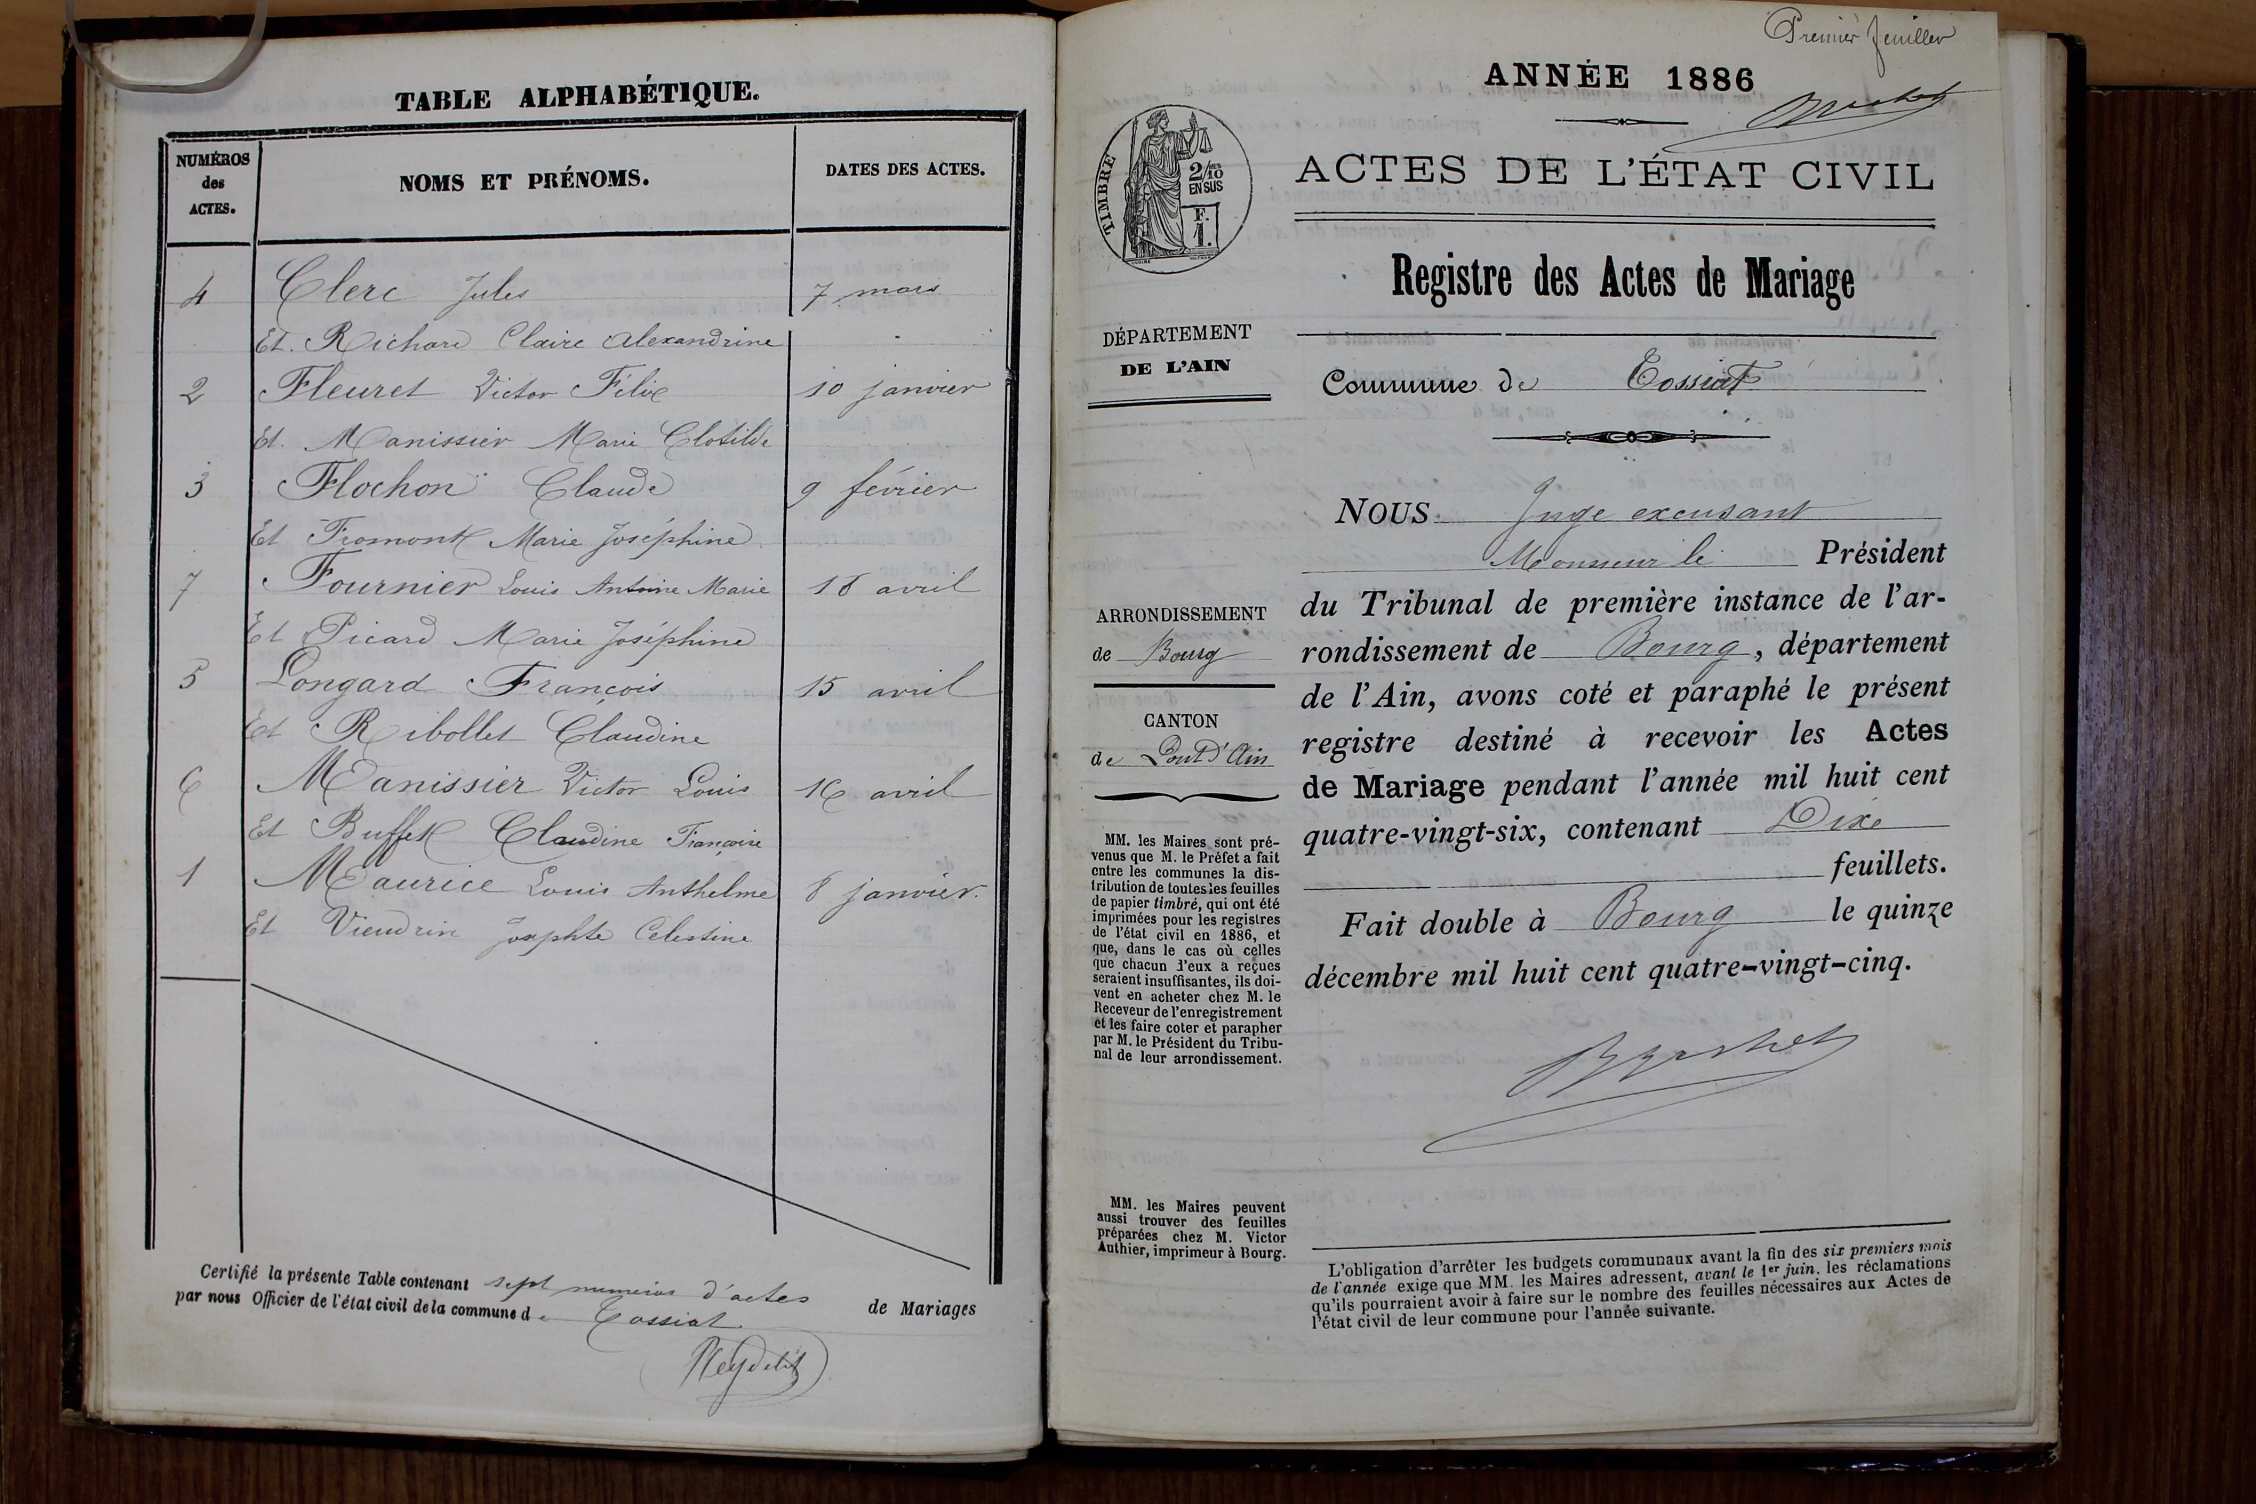 TABLE ALPHABÉTIQUE.
NUMÉROS
des
ACTES.
NOMS ET PRÉNOMS.
DATES DES ACTES.
4 Clerc Jules 7 mars
Et. Richard Claire Alexandrine
2 Fleuret Victor Félix 10 janvier
Et. Manissier Marie Clotilde
3 Flochon Claude 9 février
Et Fromont Marie Joséphine
7 Fournier Louis Antoine Marie 18 avril
Et Picard Marie Joséphine
5 Longard François 15 avril
Et Ribollet Claudine
6 Manissier Victor Louis 16 avril
Et Buffet Claudine Françoise
1 Maurice Louis Anthelme 8 janvier.
Et Vieudrin Josephte Celestine
Certifié la présente Table contenant sept numéros d'actes de Mariages
par nous Officier de l'état civil de la commune de Tossiat
Premier feuillet
ANNÉE 1886
TIMBRE
2/10
EN SUS
F.
1.
ACTES DE L'ÉTAT CIVIL
Registre des Actes de Mariage
DÉPARTEMENT
DE L'AIN
Commune de Tossiat
NOUS Juge excusant
Monsieur le Président
du Tribunal de première instance de l'ar-
rondissement de Bourg, département
de l'Ain, avons coté et paraphé le présent
registre destiné à recevoir les Actes
de Mariage pendant l'année mil huit cent
quatre-vingt-six, contenant Dix
feuillets.
Fait double à Bourg le quinze
décembre mil huit cent quatre-vingt-cinq.
ARRONDISSEMENT
de Bourg
CANTON
de Pont d'Ain
MM. les Maires sont pré-
venus que M. le Préfet a fait
entre les communes la dis-
tribution de toutes les feuilles
de papier timbré, qui ont été
imprimées pour les registres
de l'état civil en 1886, et
que, dans le cas où celles
que chacun d'eux a reçues
seraient insuffisantes, ils doi-
vent en acheter chez M. le
Receveur de l'enregistrement
et les faire coter et parapher
par M. le Président du Tribu-
nal de leur arrondissement.
MM. les Maires peuvent
aussi trouver des feuilles
préparées chez M. Victor
Authier, imprimeur à Bourg.
L'obligation d'arrêter les budgets communaux avant la fin des six premiers mois
de l'année exige que MM. les Maires adressent, avant le 1er juin, les réclamations
qu'ils pourraient avoir à faire sur le nombre des feuilles nécessaires aux Actes de
l'état civil de leur commune pour l'année suivante.